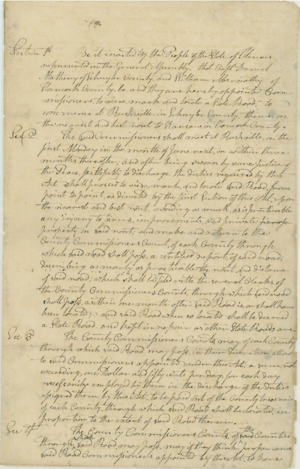 Section 1st Be it enacted by the People of the State of Illinois
represented in the General Assembly, that
Matheny of Schuyler County and William Abernathy of
Hancock County be and they are hereby appointed Com-
missioners to view, mark and locate a State Road, to
commence at Rushville, in Schuyler County, thence on
the nearest and best rout to Warsaw in Hancock County.
Sec 2d The said Commissioners shall meet at Rushville, on the
first Monday in the month of June next, or within three
months thereafter, and after being sworn by some Justice of
the Peace, faithfully to discharge the duties required by this
Act, shall proceed to view, mark, and locate said Road from
point to point, as described by the first section of this Act, upon
the nearest and best rout, avoiding as much as is practicable
any injury to farms, improvements, and private
property in said rout, and make out a return to the
County Commissioners Court, of each County through
which said road shall pass, a certified report of said road,
describing as nearly as practicable the rout and distance
of said road, which shall be filed with the several Clerks of
the County Commissioners Courts, through which said road
shall pass, within one month after said Road shall have
been located; and said Road when so located shall be deemed
a State Road and kept in repair as other State Roads are.
Sec 3 The County Commissioners Courts of each County
through which said Road may pass,
to said Commissioners appointed under this Act, a sum not
exceeding one Dollar and fifty cents per day for each day
necessarily employed by them in the discharge of the duties
assigned them by this Act, to be paid out of the County treasuries
of each County through which said Road shall be located, in
proportion to the extent of said Road therein.
Sec 4th The County Commissioners Courts of said Counties
through which said Road may pass, may if they think proper
said Road Commissioners appointed by this Act, to